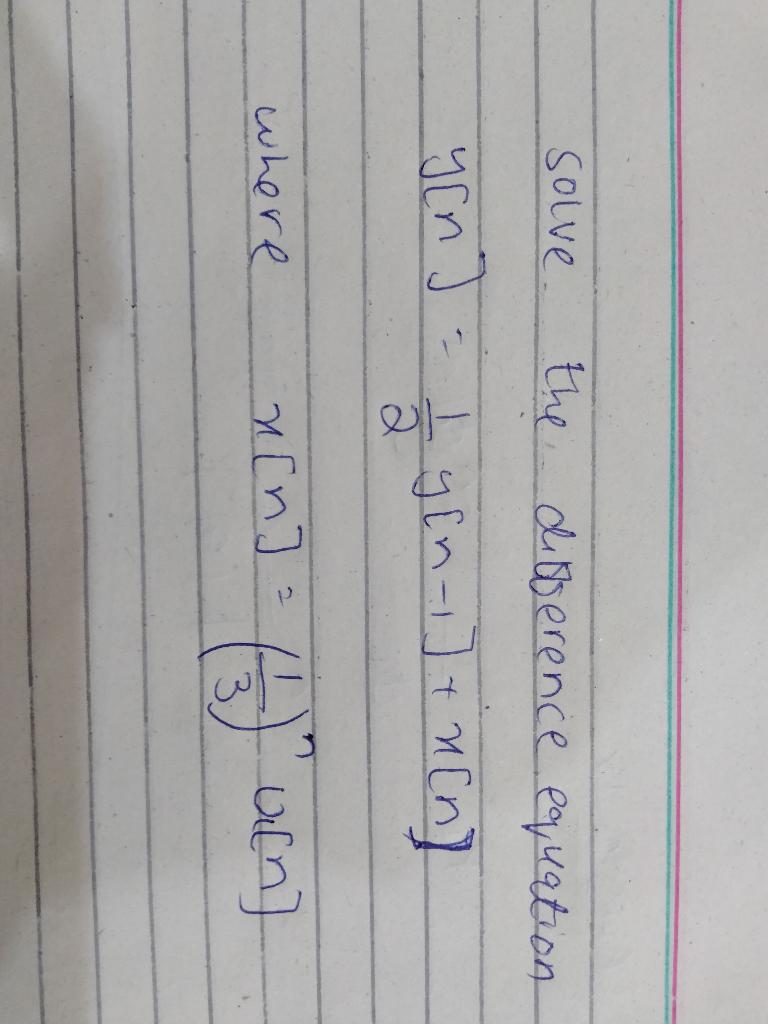 solve the difference equation
y[n] = 1/2 y[n-1] + x[n]
where x[n] = (1/3)^n u[n]